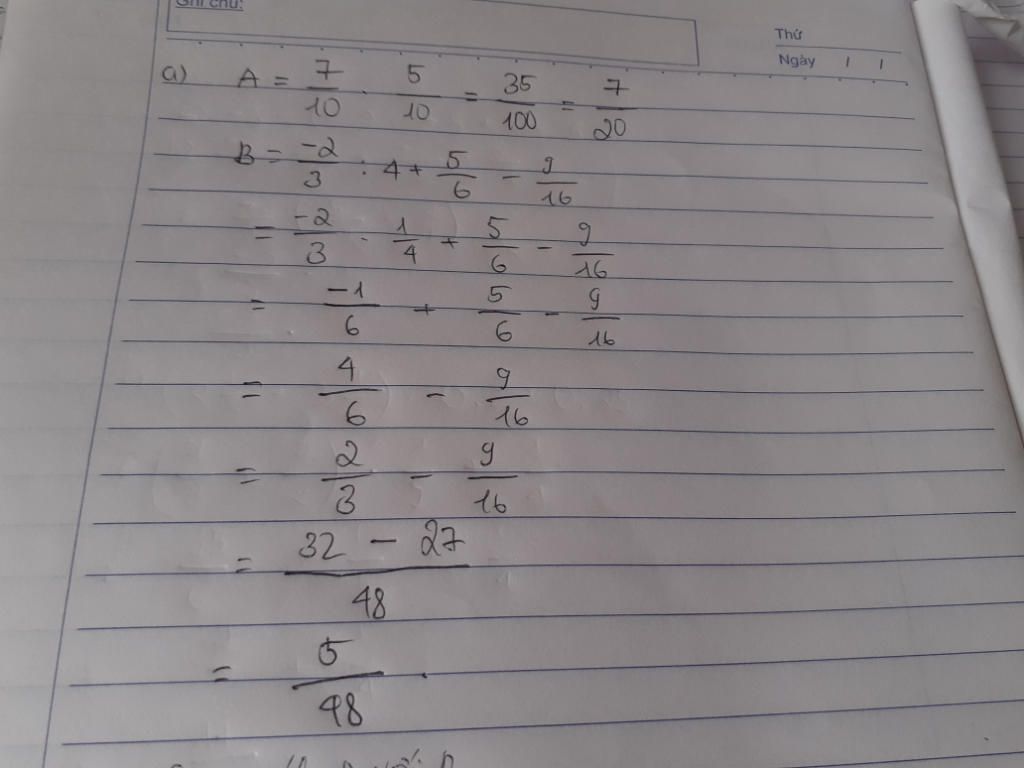 Ghi chú:
Thứ
Ngày / /
a) A = 7/10 . 5/10 = 35/100 = 7/20
B = -2/3 : 4 + 5/6 - 9/16
= -2/3 . 1/4 + 5/6 - 9/16
= -1/6 + 5/6 - 9/16
= 4/6 - 9/16
= 2/3 - 9/16
= (32 - 27)/48
= 5/48 .